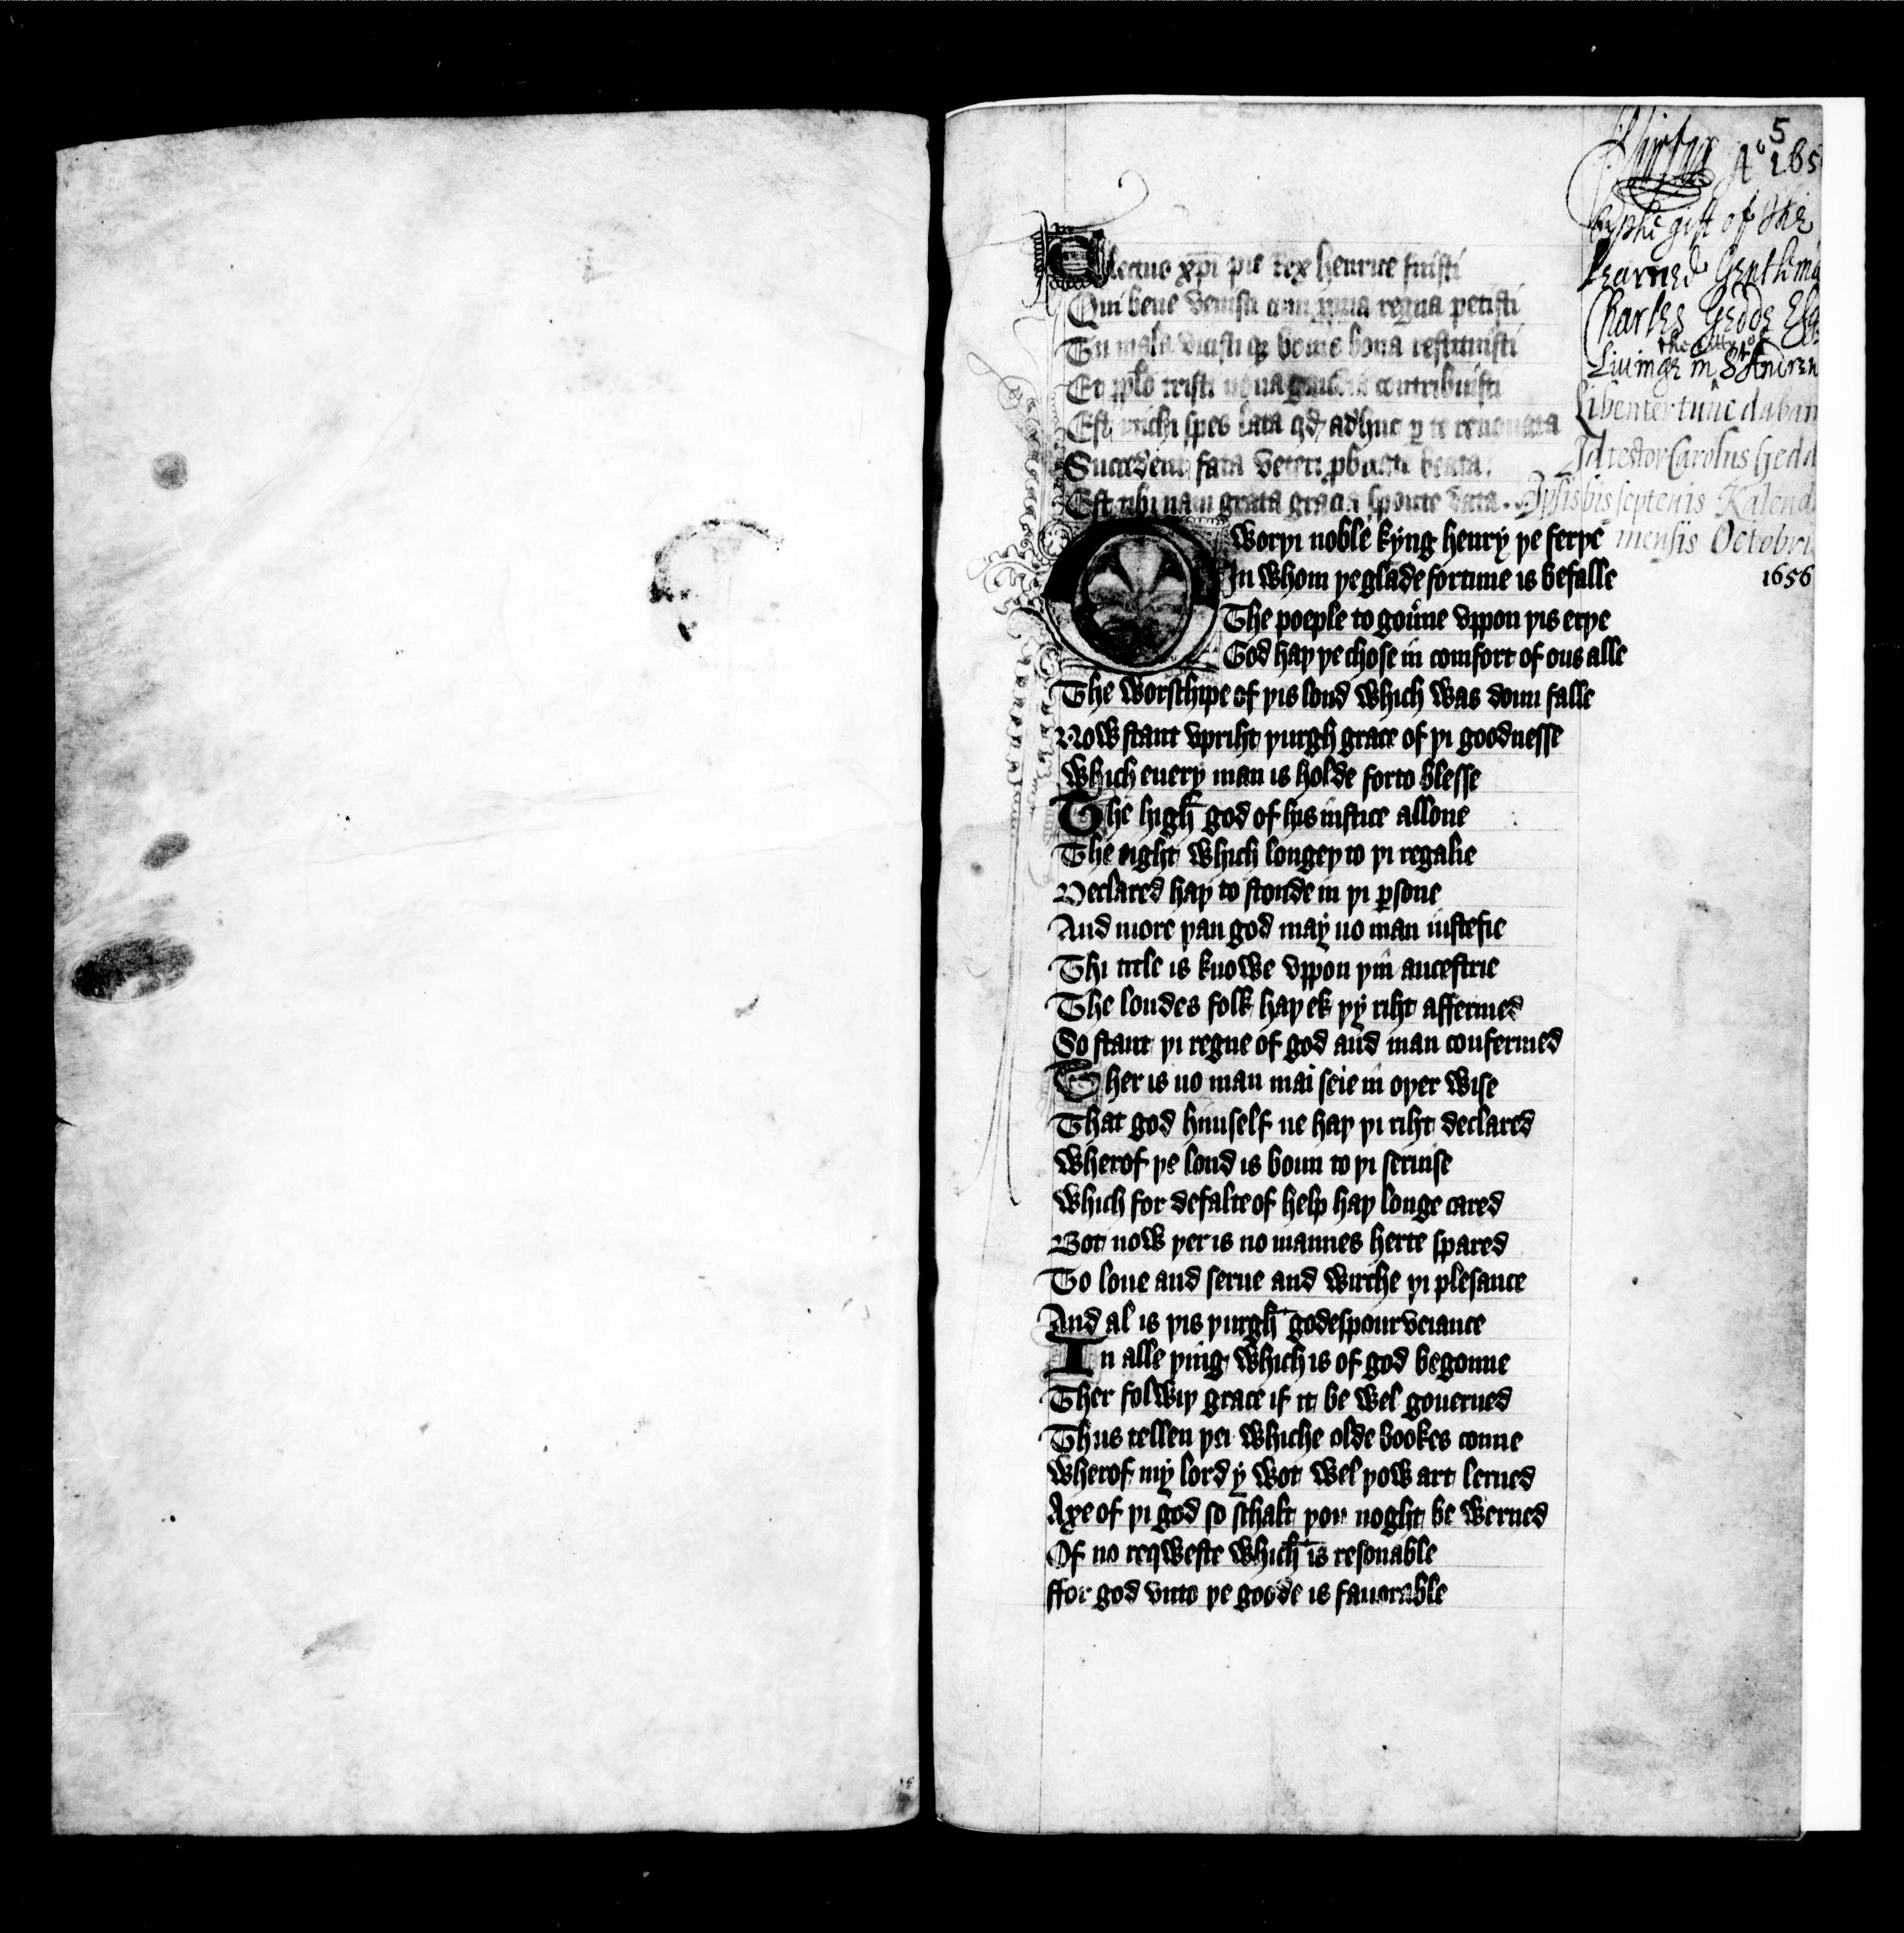 5
Aº 165
by the gift of the
Learned Gentlema
Charles Gedde Esq
the Citty of
Liuinge in St Andrew
Libenter tunc daban
Id testor Carolus Gedd
Ipsis bis septenis Kalend
mensis Octobri
1656
Electus xp̄i pie Rex henrice fuisti
Qui bene venisti cum ꝓpria regna petisti
Tu mala vicisti qȝ bonis bona restituisti
Et pp̄lo tristi noua gaudia contribuisti
Est michi spes lata qd adhuc ꝑ te renouata
Succedent fata veteri ꝓbitate beata
Est tibi nam grata gracia sponte data.
O worþi noble kyng henry þe ferþe
In whom þe glade fortune is befalle
The poeple to gou̾ne vppon þis erþe
God haþ þe chose in comfort of ous alle
The worschipe of þis lond which was doun falle
Now stant vpriht þurgh grace of þi goodnesse
Which euery man is holde forto blesse
The high god of his iustice allone
The right which longeþ to þi regalie
Declared haþ to stonde in þi ꝑsone
And more þan god may no man iustefie
Thi title is knowe vppon þin ancestrie
The londes folk haþ ek þy riht affermed
So stant þi regne of god and man confermed
Ther is no man mai seie in oþer wise
That god himself ne haþ þi riht declared
Wherof þe lond is boun to þi seruise
Which for defalte of help haþ longe cared
Bot now þer is no mannes herte spared
To loue and serue and wirche þi plesance
And al is þis þurgh godes pourveiance
In alle þing which is of god begonne
Ther folwiþ grace if it be wel gouerned
Thus tellen þei whiche olde bookes conne
Wherof my lord y wot wel þow art lerned
Axe of þi god so schalt þou noght be werned
Of no reqweste which is resonable
ffor god vnto þe goode is fauorable